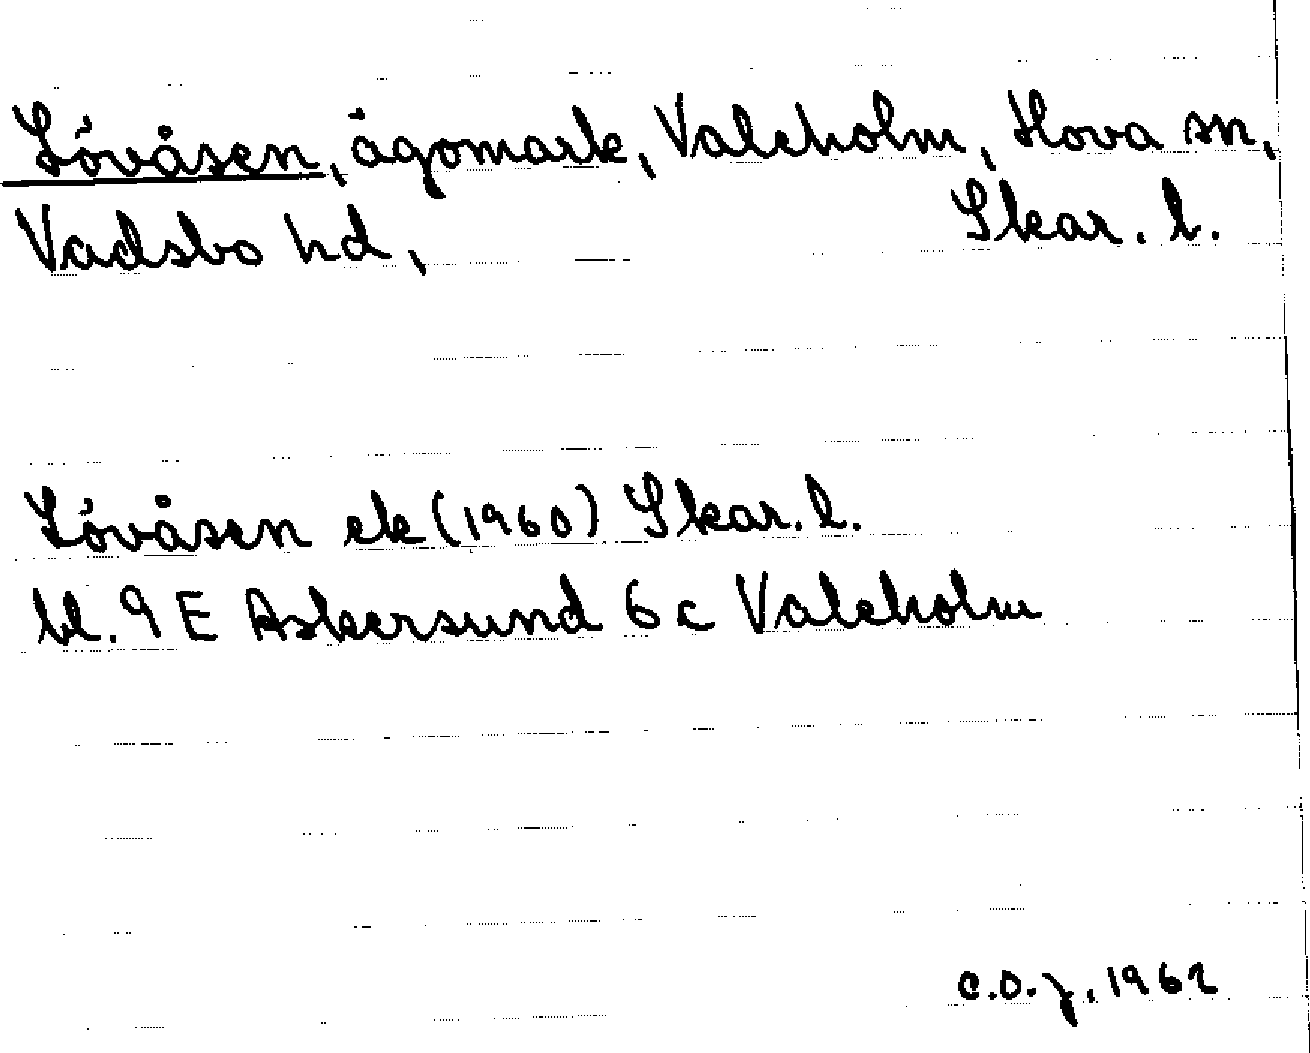 Lövåsen, ägomark, Valeholm, Hova sn,
Vadsbo hd, Skar. l.
Lövåsen ek (1960) Skar. l.
bl. 9 E Askersund 6 c Valeholm
C.O.J. 1962